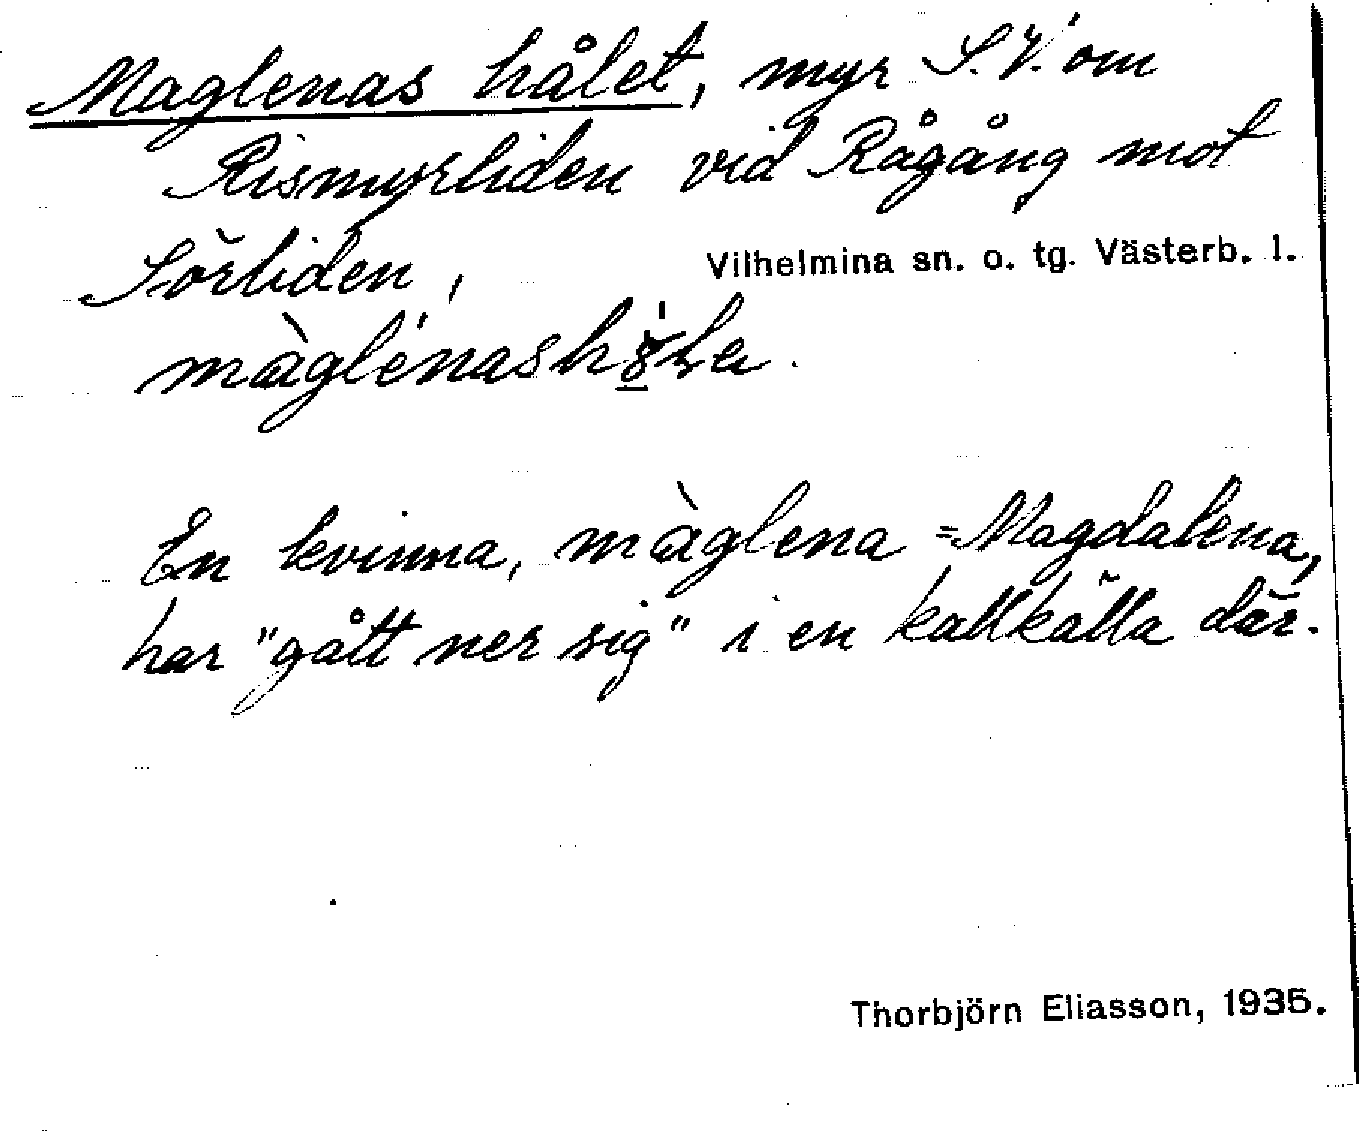 Maglenas hålet, myr S.V. om
Rismyrliden vid Rågång mot
Sörliden,
Vilhelmina sn. o. tg. Västerb. l.
En kvinna, màglena = Magdalena,
har "gått ner sig" i en kallkälla där.
Thorbjörn Eliasson, 1935.